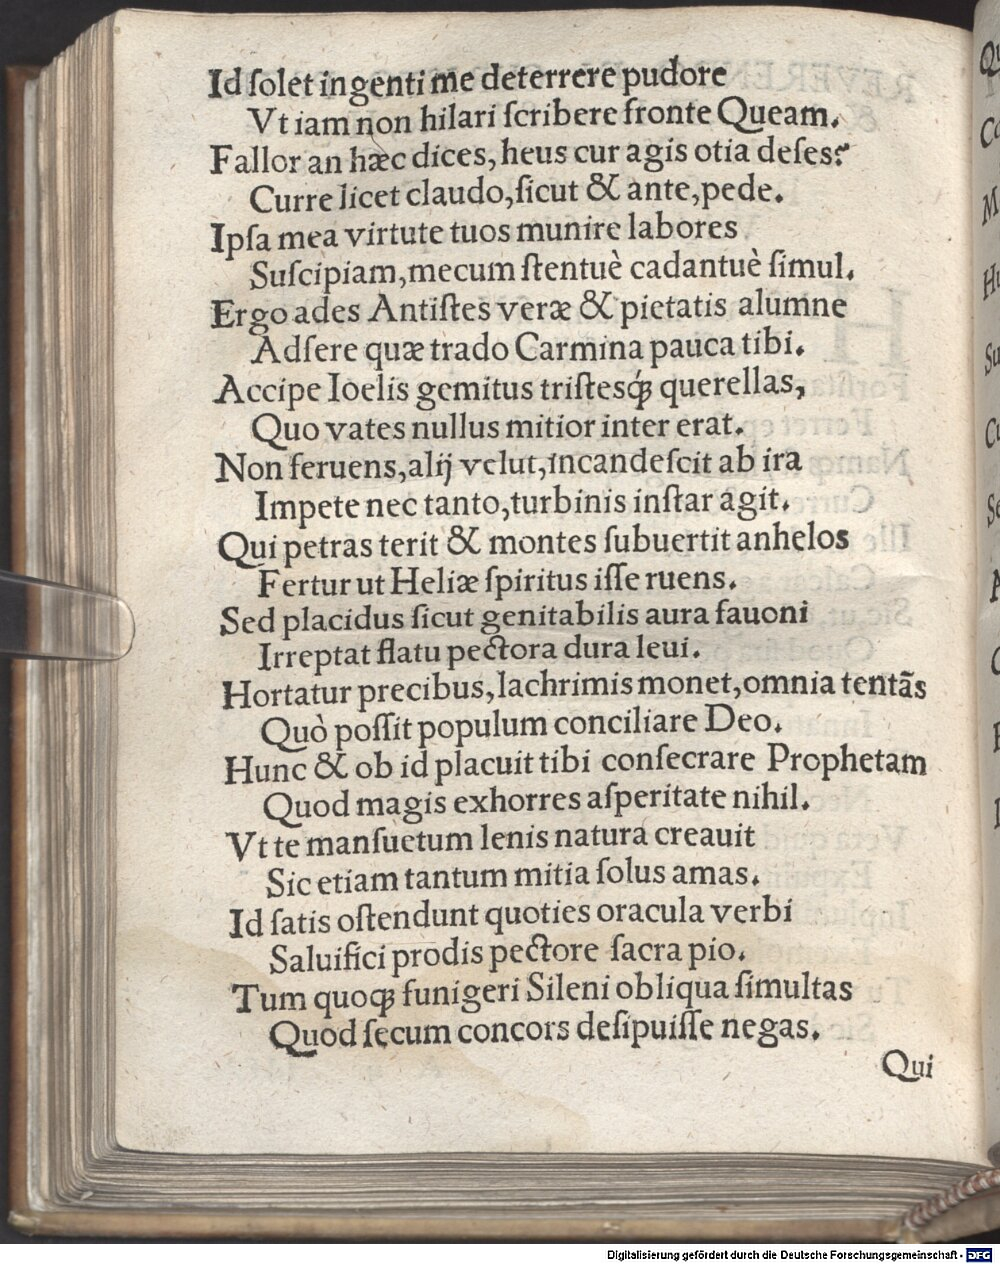 Id ſolet ingenti me deterrere pudore
Vt iam non hilari ſcribere fronte Queam.
Fallor an hæc dices, heus cur agis otia deſes?
Curre licet claudo, ſicut & ante, pede.
Ipſa mea virtute tuos munire labores
Suſcipiam, mecum ſtentuè cadantuè ſimul.
Ergo ades Antiſtes veræ & pietatis alumne
Adſere quæ trado Carmina pauca tibi.
Accipe Ioelis gemitus triſtesq́ꝫ querellas,
Quo vates nullus mitior inter erat.
Non feruens, alij velut, incandeſcit ab ira
Impete nec tanto, turbinis inſtar agit.
Qui petras terit & montes ſubuertit anhelos
Fertur ut Heliæ ſpiritus iſſe ruens.
Sed placidus ſicut genitabilis aura fauoni
Irreptat flatu pectora dura leui.
Hortatur precibus, lachrimis monet, omnia tentãs
Quò poſſit populum conciliare Deo.
Hunc & ob id placuit tibi conſecrare Prophetam
Quod magis exhorres aſperitate nihil.
Vt te manſuetum lenis natura creauit
Sic etiam tantum mitia ſolus amas.
Id ſatis oſtendunt quoties oracula verbi
Saluifici prodis pectore ſacra pio.
Tum quoqꝫ funigeri Sileni obliqua ſimultas
Quod ſecum concors deſipuiſſe negas.
Qui
Digitalisierung gefördert durch die Deutsche Forschungsgemeinschaft - DFG